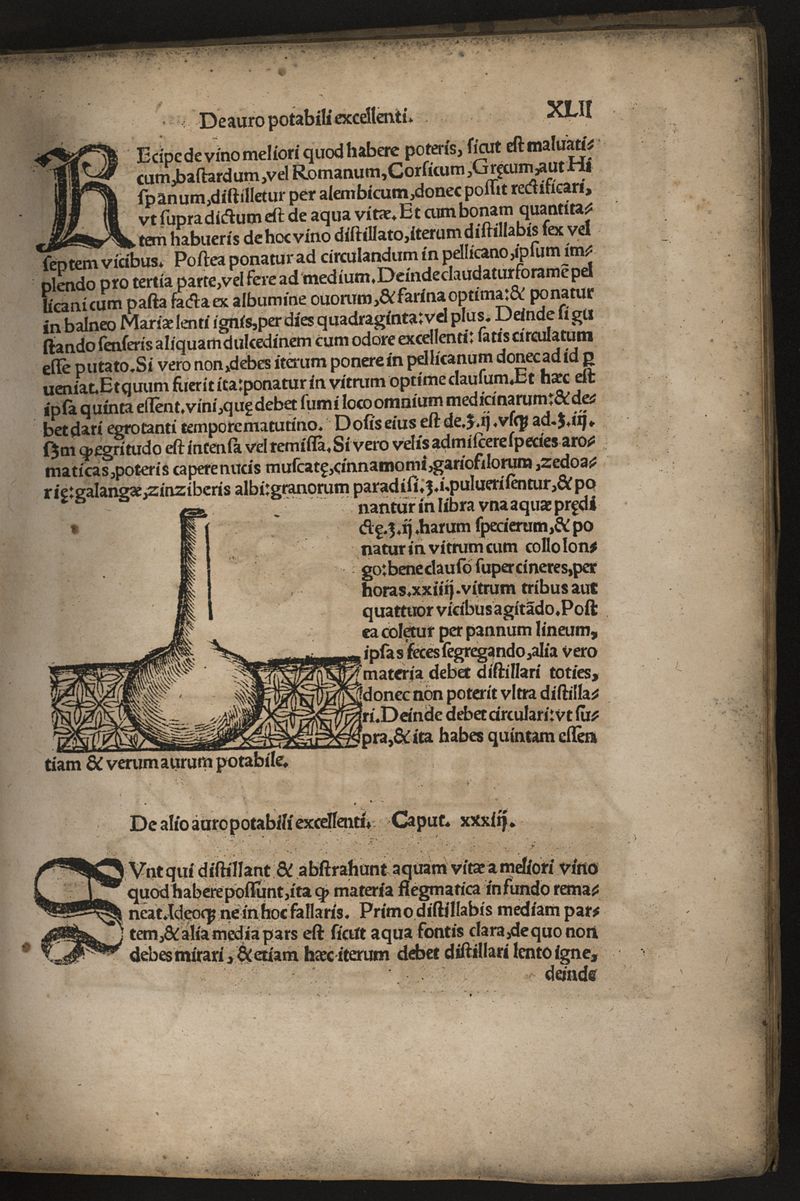 De auro potabili excellenti.
XLII
REcipe de vino meliori quod habere poteris, ſicut eſt maluati⸗
cum,baſtardum,vel Romanum,Corſicum,Gręcum,aut Hi
ſpanum,diſtilletur per alembicum,donec poſſit rectificari,
vt ſupra dictum eſt de aqua vitæ.Et cum bonam quantita⸗
tem habueris de hoc vino diſtillato,iterum diſtillabis ſex vel
ſeptem vicibus. Poſtea ponatur ad circulandum in pellicano,ipſum im⸗
plendo pro tertia parte,vel fere ad medium.Deinde claudatur foramē pel
licani cum paſta facta ex albumine ouorum,& farina optima:& ponatur
in balneo Mariæ lenti ignis,per dies quadraginta:vel plus. Deinde ſi gu
ſtando ſenſeris aliquam dulcedinem cum odore excellenti: ſatis circulatum
eſſe putato.Si vero non,debes iterum ponere in pellicanum donec ad id ꝑ
ueniat.Et quum fuerit ita:ponatur in vitrum optime clauſum.Et hæc eſt
ipſa quinta eſſent.vini,quę debet ſumi loco omnium medicinarum:& de⸗
bet dari egrotanti tempore matutino. Doſis eius eſt de.ʒ.ij.vſꝗ ad.ʒ.iij.
ſꝫm ꝙ egritudo eſt intenſa vel remiſſa.Si vero velis admiſcere ſpecies aro⸗
maticas,poteris capere nucis muſcatę,cinnamomi,gariofilorum,zedoa⸗
rię:galangæ,zinziberis albi:granorum paradiſi.ʒ.i.pulueriſentur,& po
nantur in libra vna aquæ prędi
ctę.ʒ.ij.harum ſpecierum,& po
natur in vitrum cum collo lon⸗
go:bene clauſo ſuper cineres,per
horas.xxiiij.vitrum tribus aut
quattuor vicibus agitādo.Poſt
ea coletur per pannum lineum,
ipſas feces ſegregando,alia vero
materia debet diſtillari toties,
donec non poterit vltra diſtilla⸗
ri.Deinde debet circulari:vt ſu⸗
pra,& ita habes quintam eſſen
tiam & verum aurum potabile.
De alio auro potabili excellenti. Caput. xxxiij.
SVnt qui diſtillant & abſtrahunt aquam vitæ a meliori vino
quod habere poſſunt,ita ꝙ materia flegmatica in fundo rema⸗
neat.Ideoꝗ ne in hoc fallaris. Primo diſtillabis mediam par⸗
tem,& alia media pars eſt ſicut aqua fontis clara,de quo non
debes mirari, & etiam hæc iterum debet diſtillari lento igne,
deinde